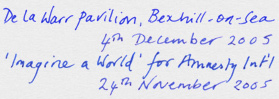 De La Warr Pavilion, Bexhill-on-Sea
4th December 2005
'Imagine a World' for Amnesty Int'l
24th November 2005